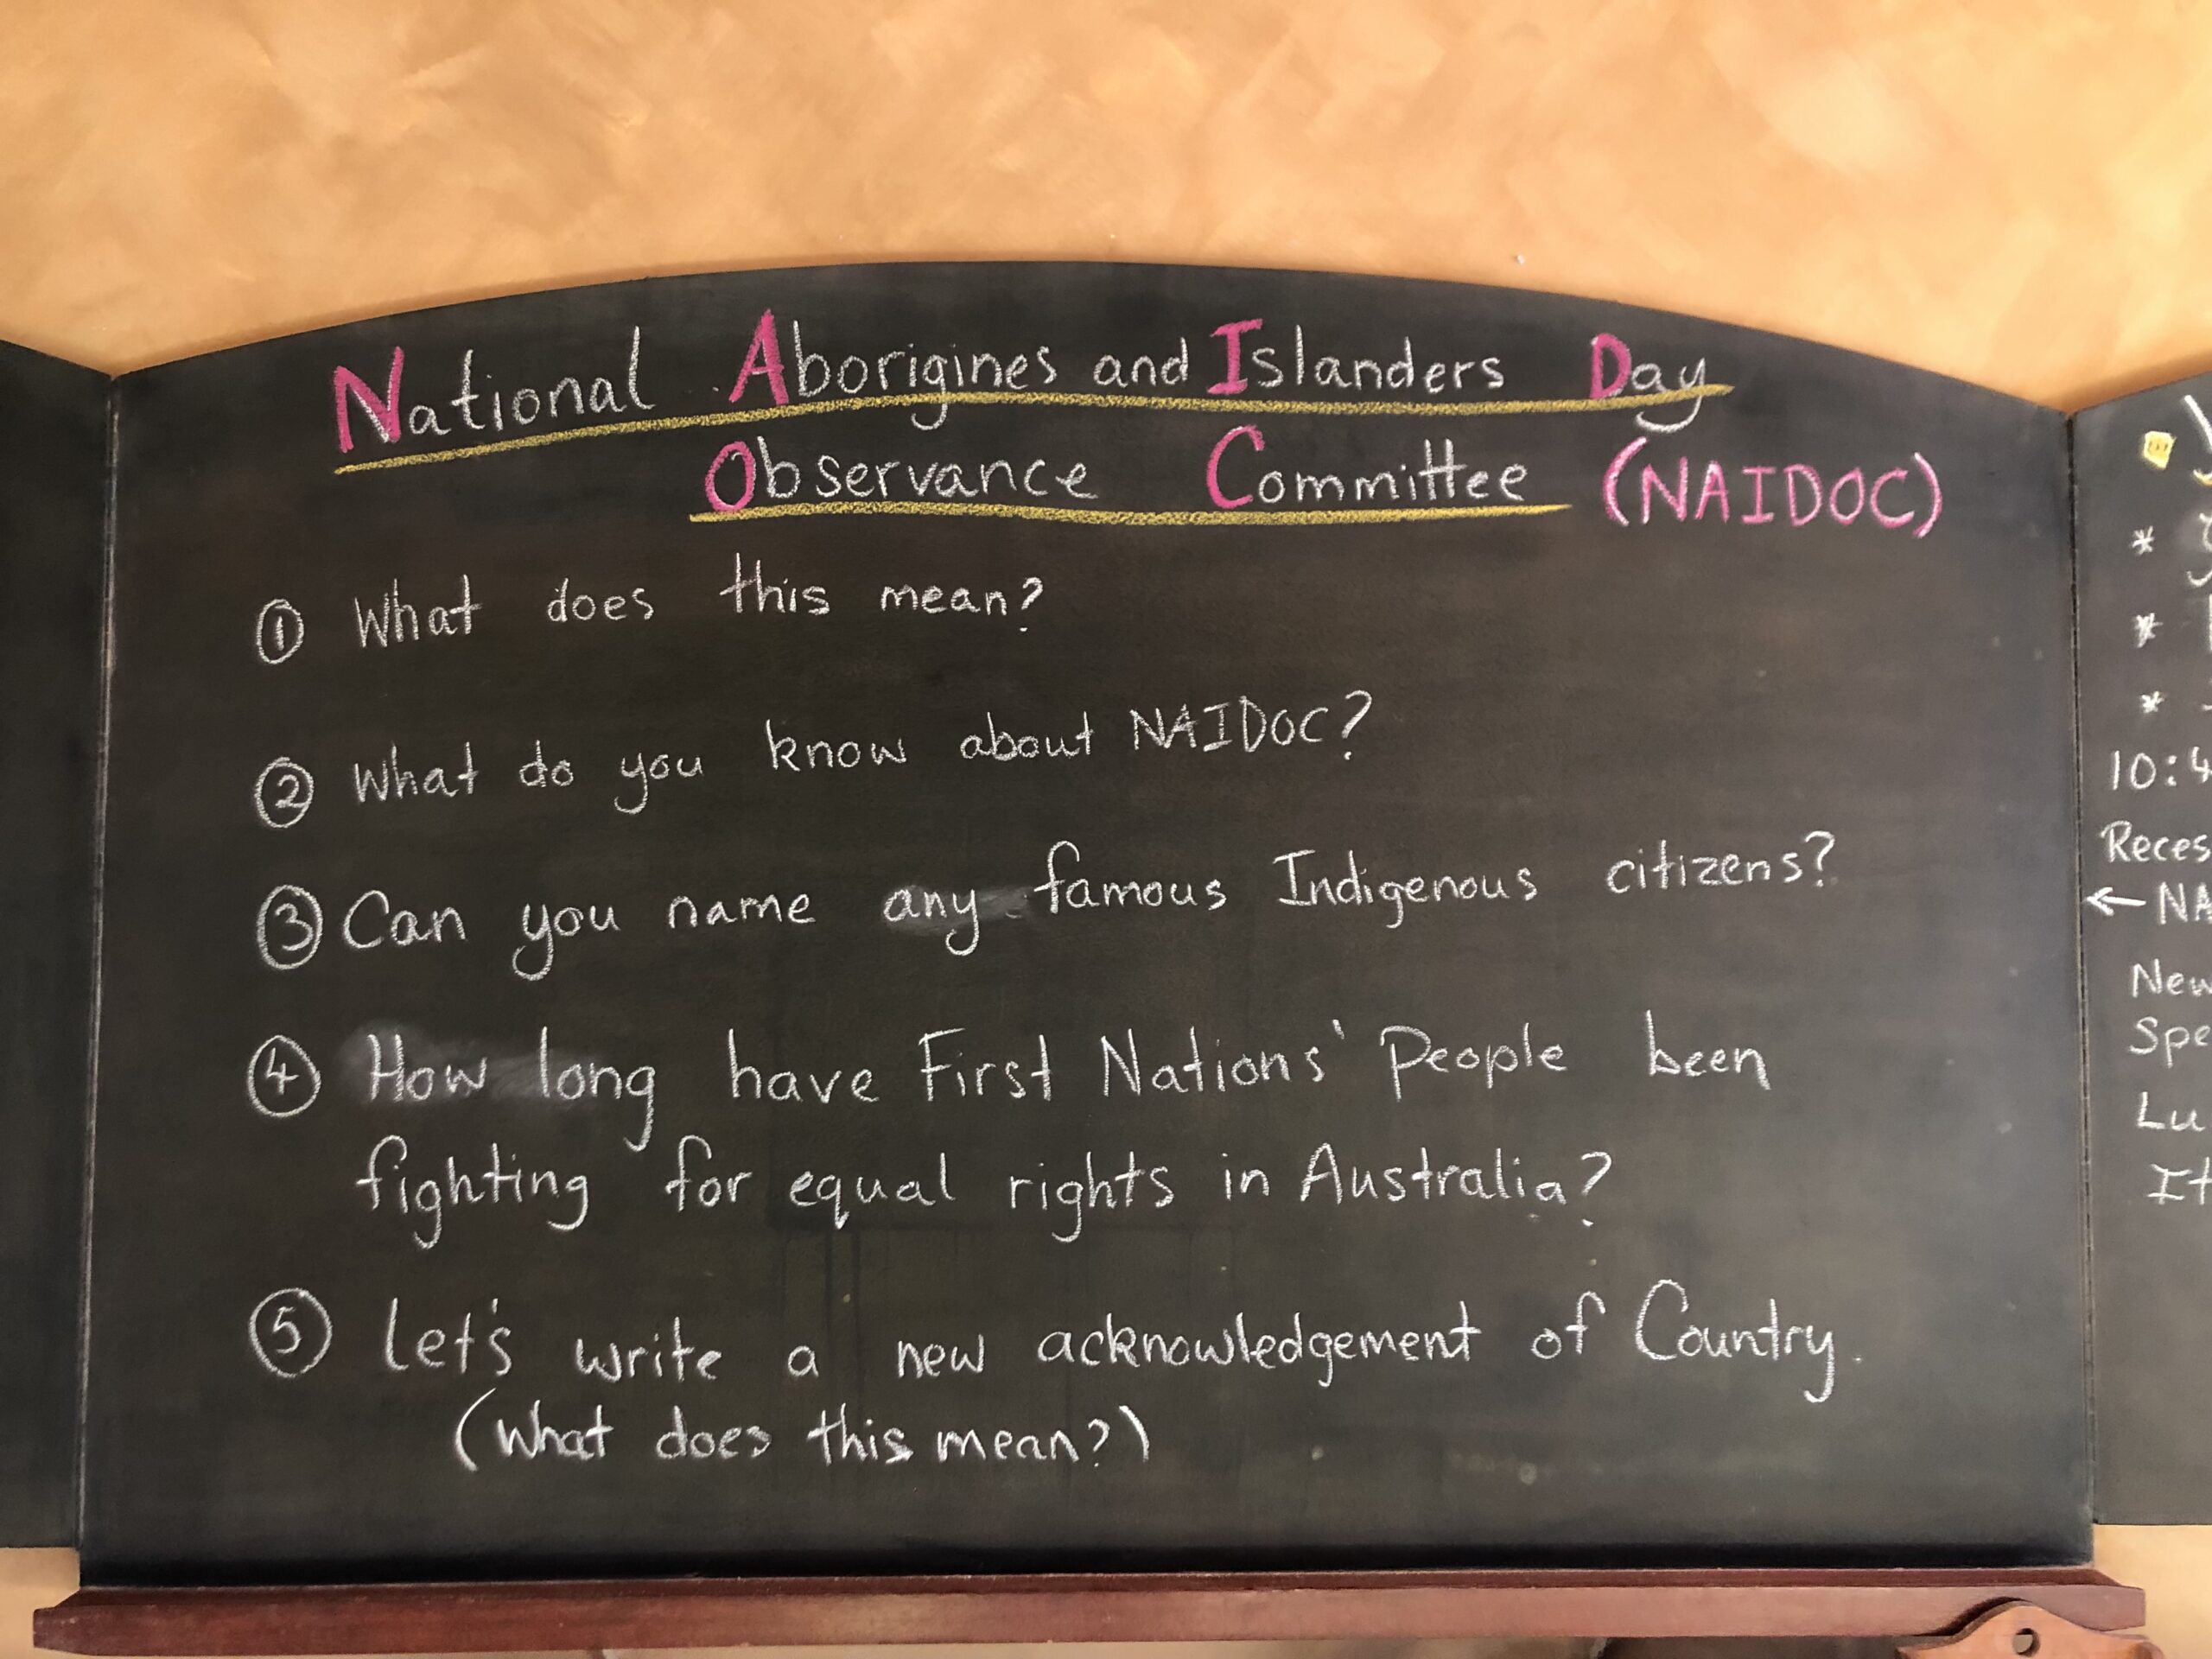 National Aborigines and Islanders Day
Observance Committee (NAIDOC)
① What does this mean?
② What do you know about NAIDOC?
③ Can you name any famous Indigenous citizens?
④ How long have First Nations' People been
fighting for equal rights in Australia?
⑤ Let's write a new acknowledgement of Country.
(What does this mean?)
*
*
*
10:4
Reces
← NA
New
Spe
Lu
It